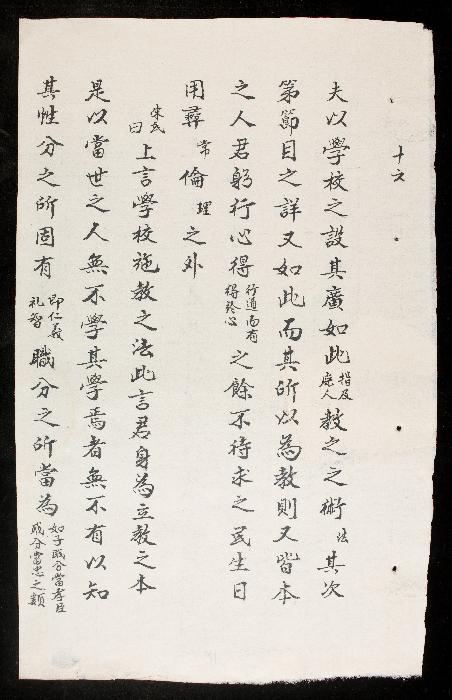 十六
夫以學校之設其廣如此指及庶人教之之術法其次
第節目之詳又如此而其所以為教則又皆本
之人君躬行心得行道而有得於心之餘不待求之民生日
用彛常倫理之外
朱氏曰上言學校施教之法此言君身為立教之本
是以當世之人無不學其學焉者無不有以知
其性分之所固有即仁義礼智職分之所當為如子職分當孝臣職分當忠之類